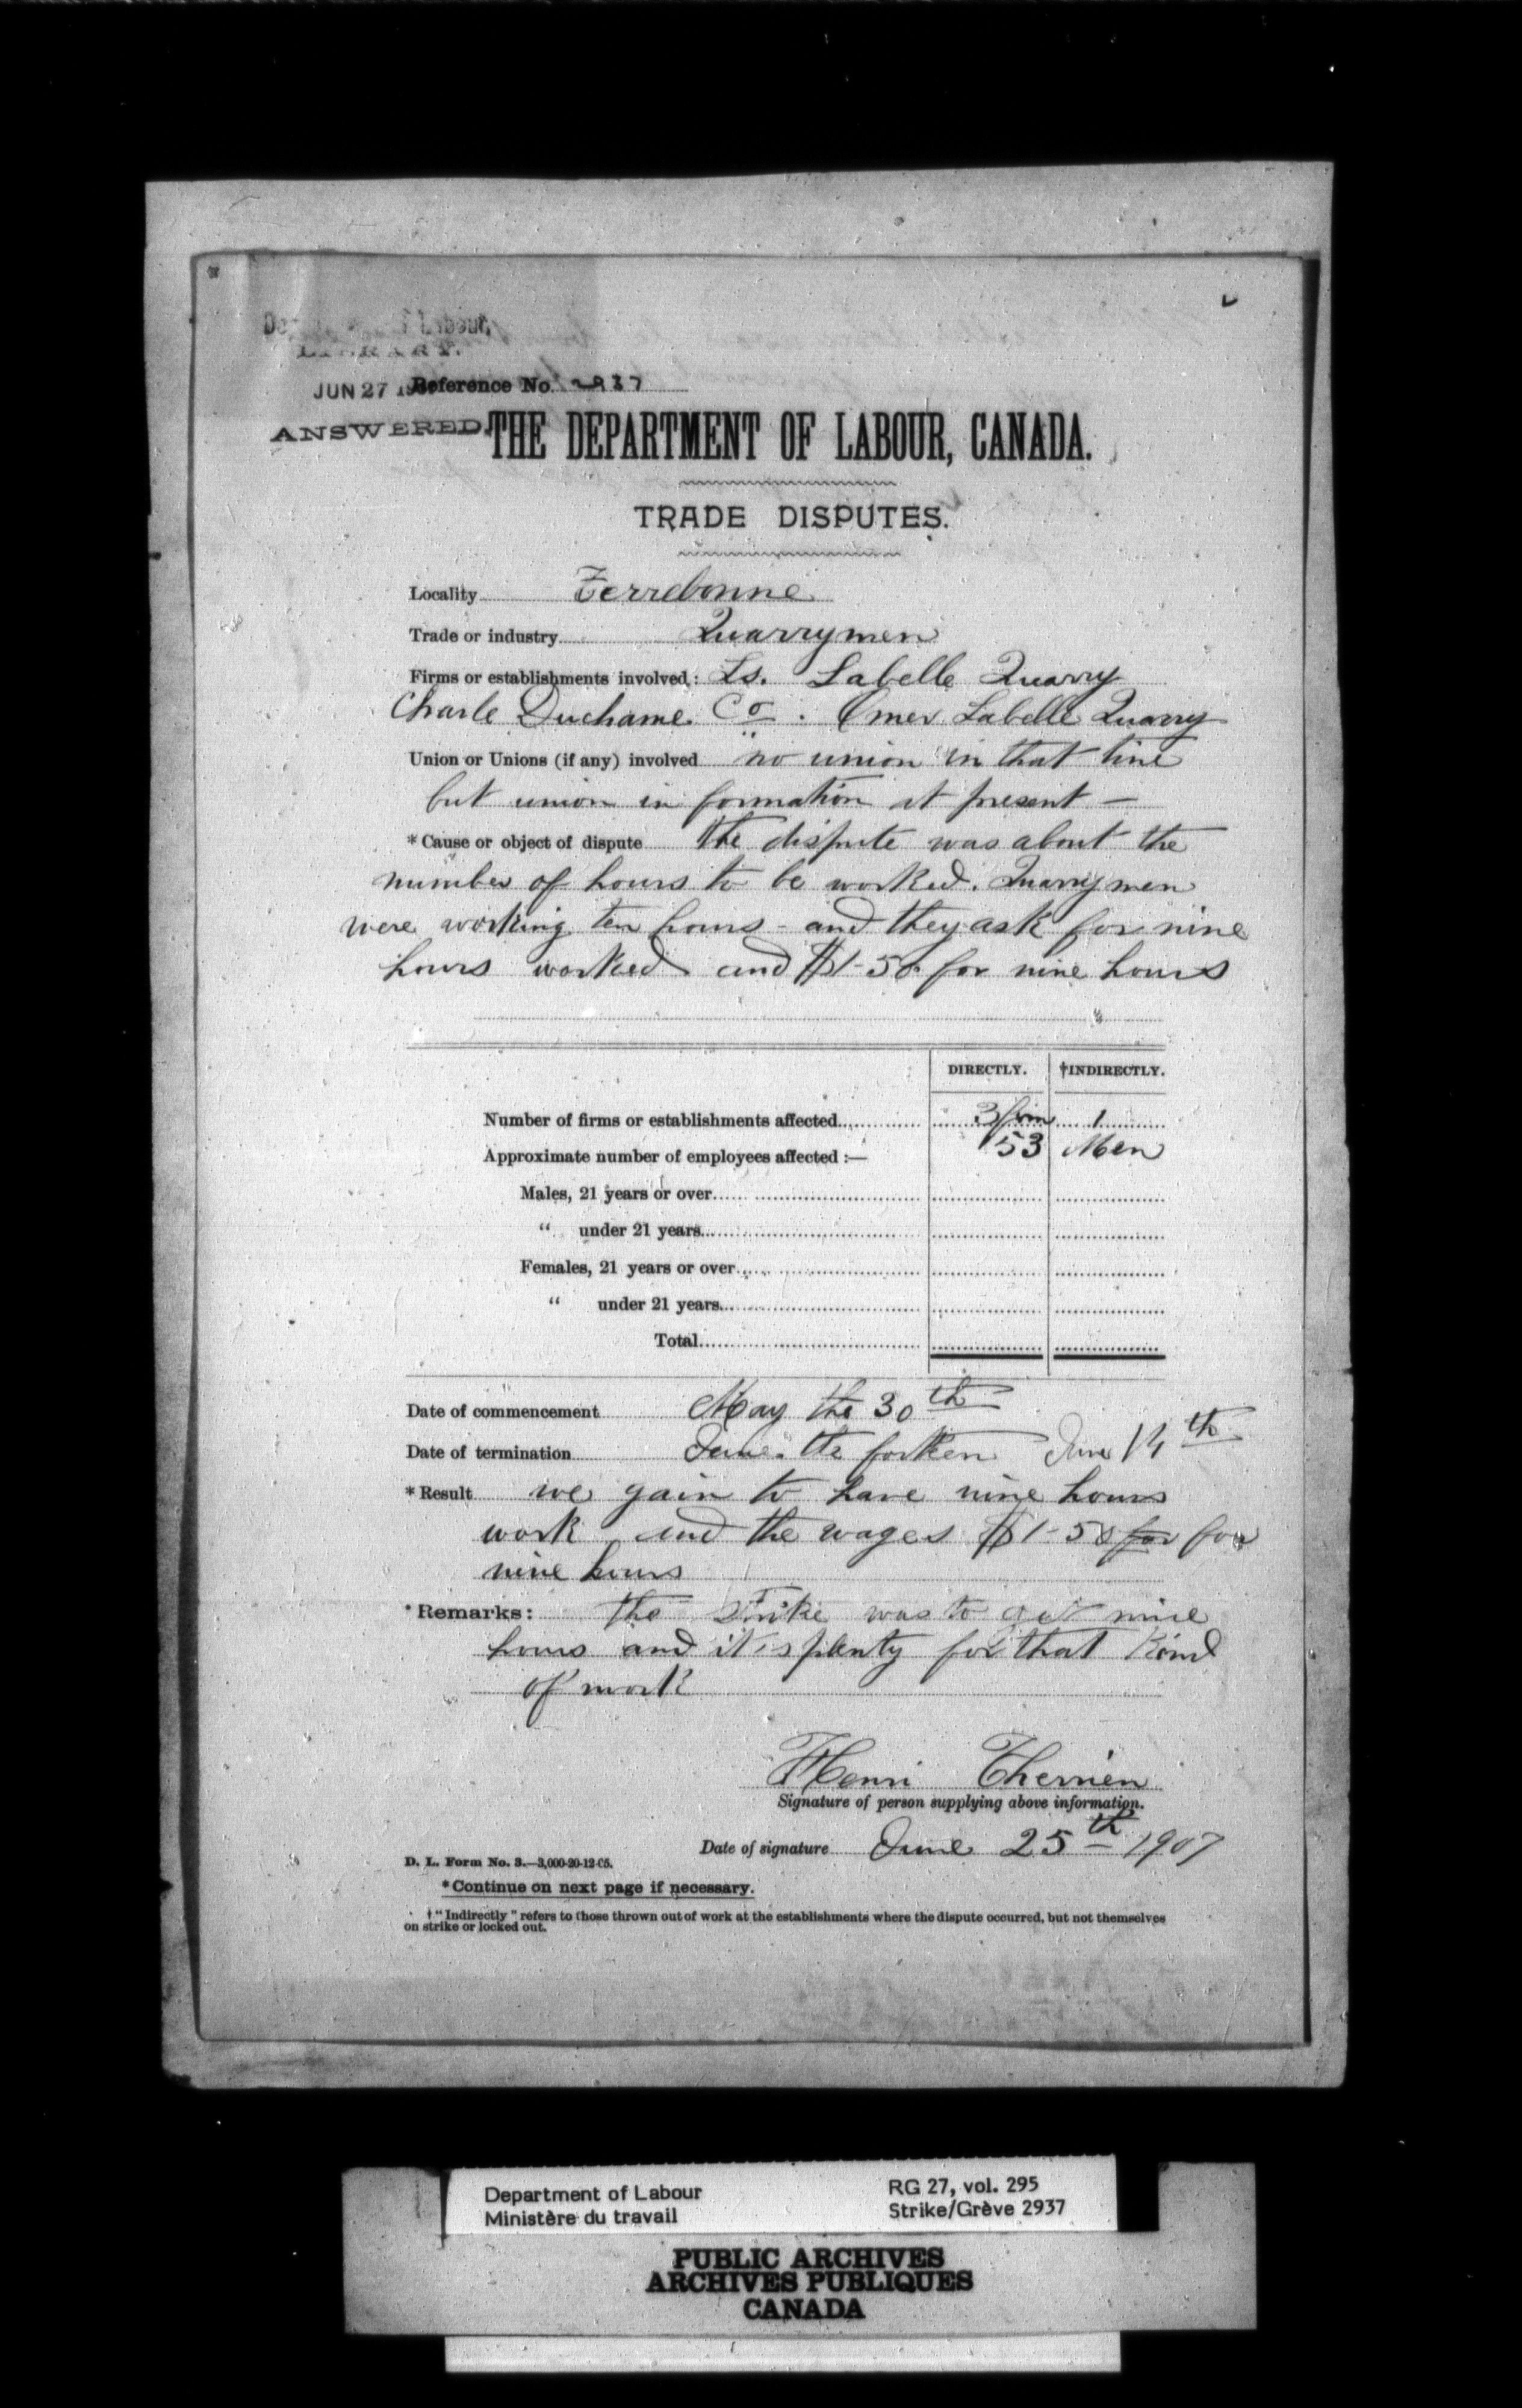 Labour,
LIBRARY.
JUN 27 19
Reference No. 2937
ANSWERED
THE DEPARTMENT OF LABOUR, CANADA.
TRADE DISPUTES.
Locality Terrebonne
Trade or industry Quarrymen
Firms or establishments involved: Ls. Labelle Quarry
Charle Duchame Co. Omer Labelle Quarry
Union or Unions (if any) involved no union in that line
but union in formation at present —
* Cause or object of dispute the dispute was about the
number of hours to be worked. Quarrymen
were working ten hours - and they ask for nine
hours worked and $1-50 for nine hours
DIRECTLY. †INDIRECTLY.
Number of firms or establishments affected 3 firm 1
Approximate number of employees affected :— 53 Men
Males, 21 years or over
" under 21 years
Females, 21 years or over
" under 21 years
Total
Date of commencement May the 30th
Date of termination June the forteen June 14th
* Result we gain to have nine hours
work and the wages $1-50 for for
nine hours
* Remarks: the strike was to get nine
hours and it is plenty for that kind
of work
Henri Therrien
Signature of person supplying above information.
Date of signature June 25th 1907
D. L. Form No. 3.—3,000-20-12-05.
* Continue on next page if necessary.
† "Indirectly" refers to those thrown out of work at the establishments where the dispute occurred, but not themselves
on strike or locked out.
Department of Labour RG 27, vol. 295
Ministère du travail Strike/Grève 2937
PUBLIC ARCHIVES
ARCHIVES PUBLIQUES
CANADA